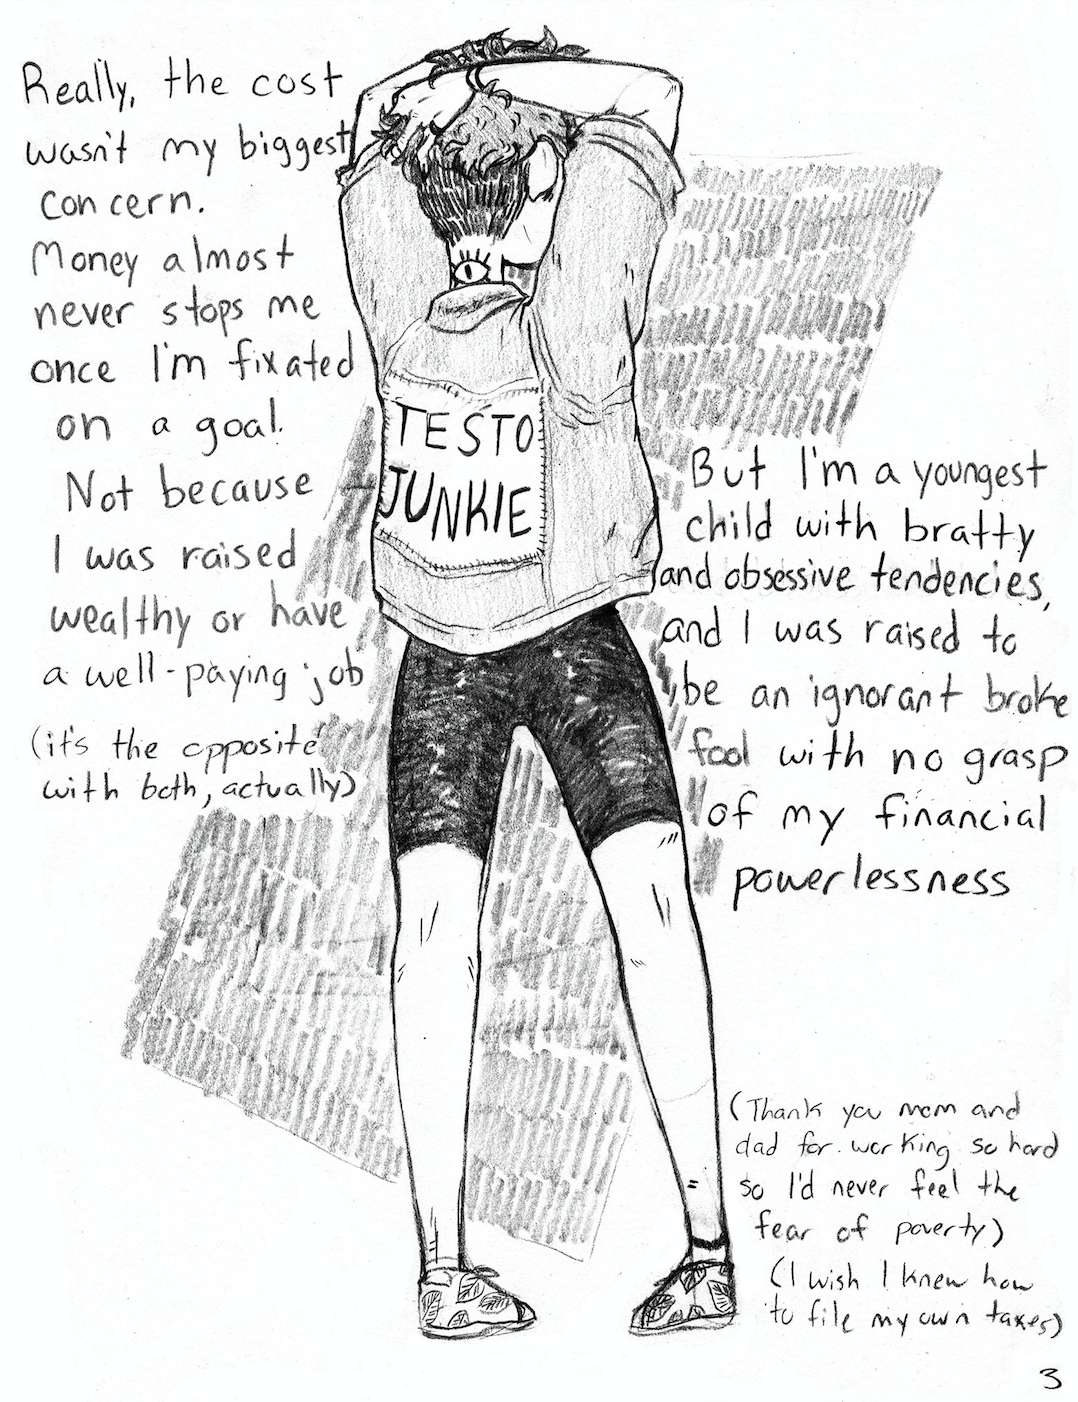 Really, the cost
wasn't my biggest
concern.
Money almost
never stops me
once I'm fixated
on a goal.
Not because
I was raised
wealthy or have
a well-paying job
(it's the opposite
with both, actually)
TESTO
JUNKIE
But I'm a youngest
child with bratty
and obsessive tendencies,
and I was raised to
be an ignorant broke
fool with no grasp
of my financial
powerlessness
(Thank you mom and
dad for working so hard
so I'd never feel the
fear of poverty)
(I wish I knew how
to file my own taxes)
3